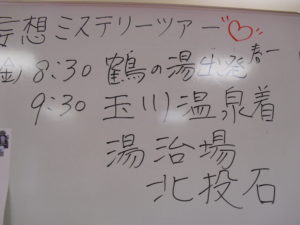 妄想ミステリーツアー♡
(金) 8:30 鶴の湯出発 春一
9:30 玉川温泉着
湯治場
北投石